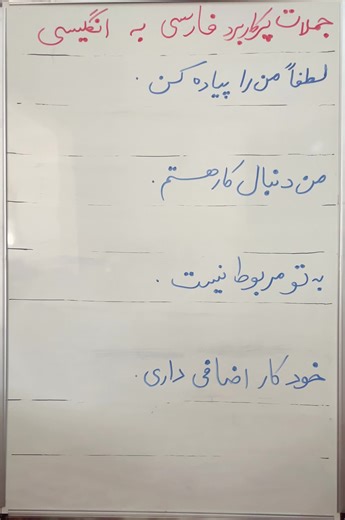 جملات پرکاربرد فارسی به انگلیسی
لطفاً من را پیاده کن.
من دنبال کار هستم.
به تو مربوط نیست.
خودکار اضافی داری.